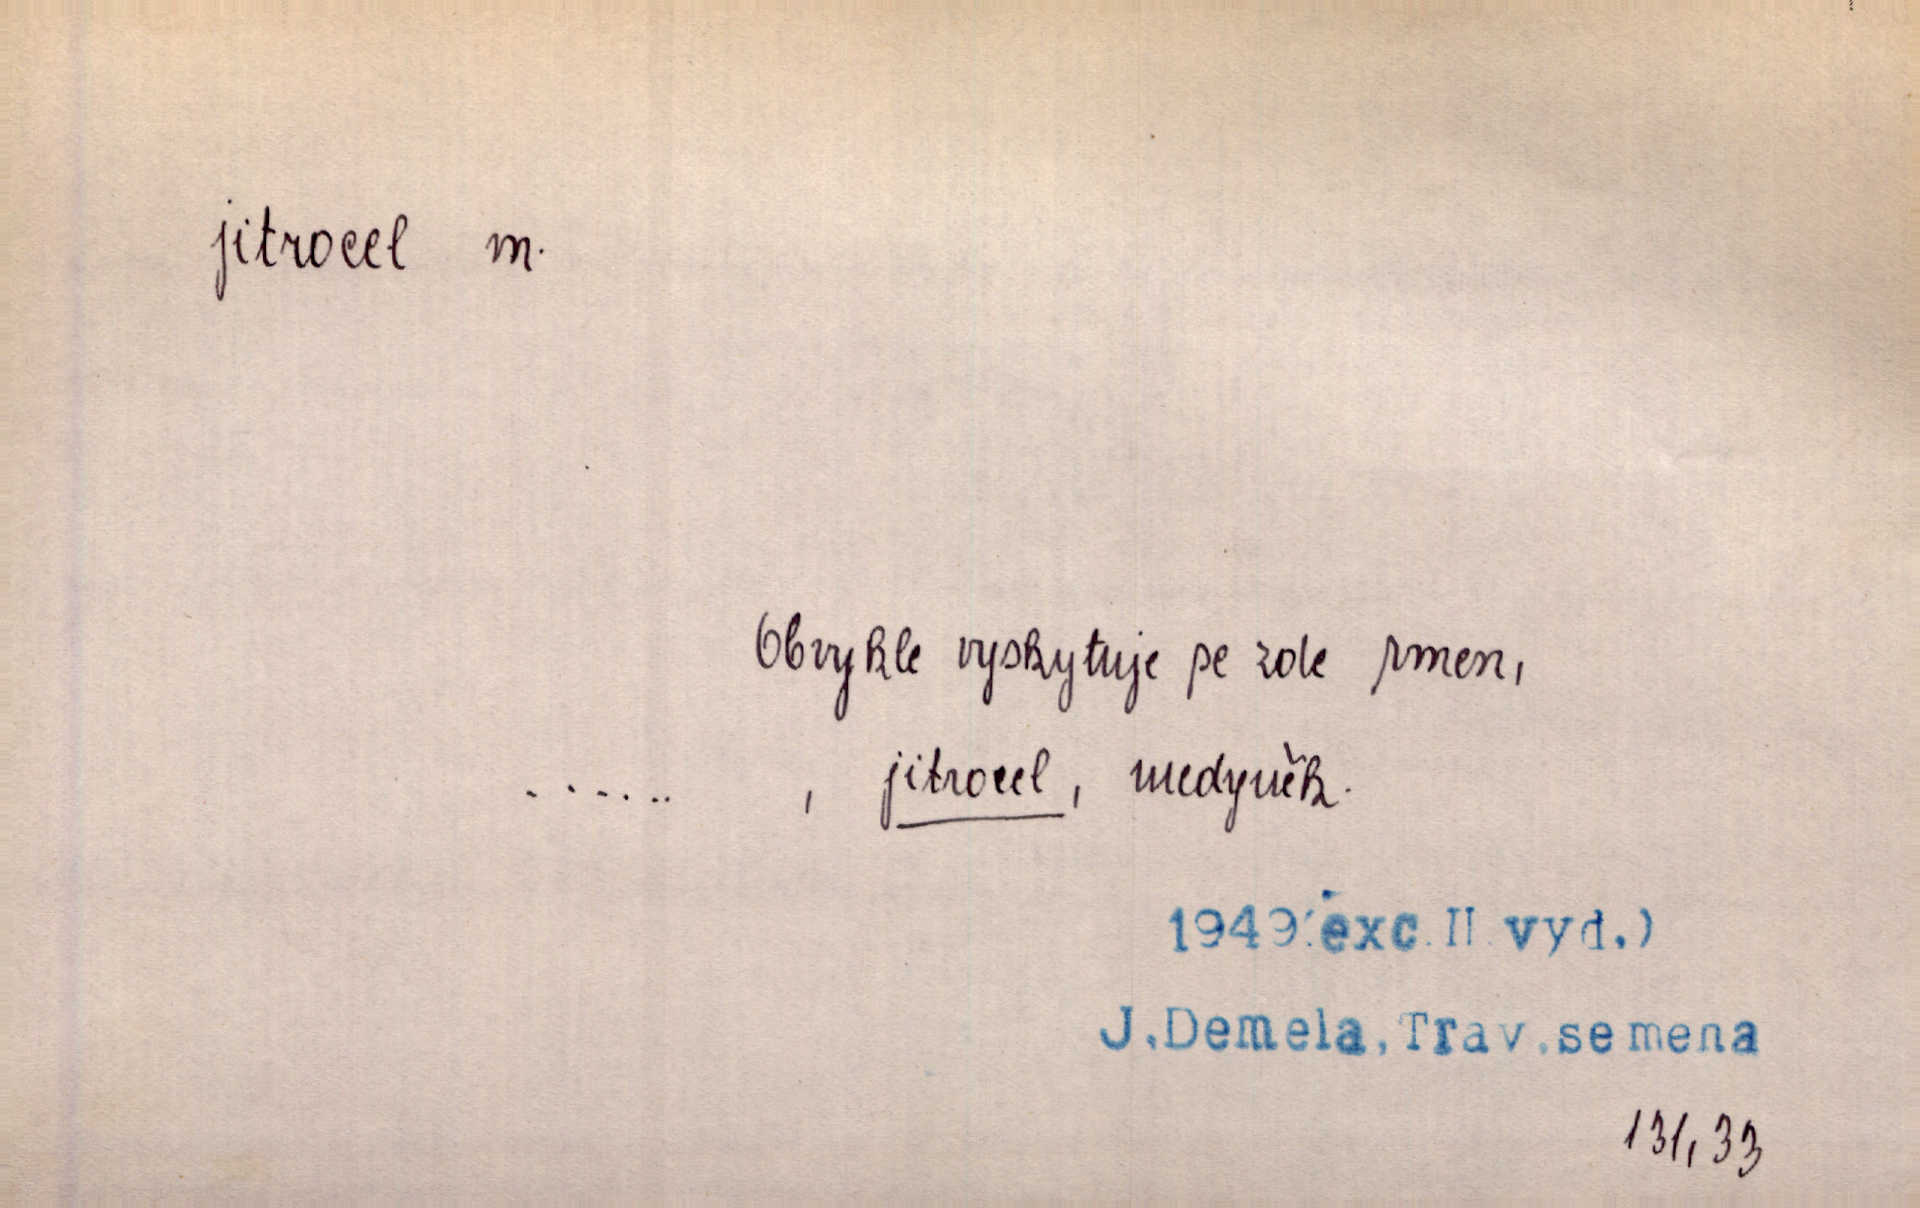 jitrocel m.
Obvykle vyskytuje se zde rmen,
......, jitrocel, medyněk.
1949(exc. II. vyd.)
J.Demela,Trav.semena
131,33